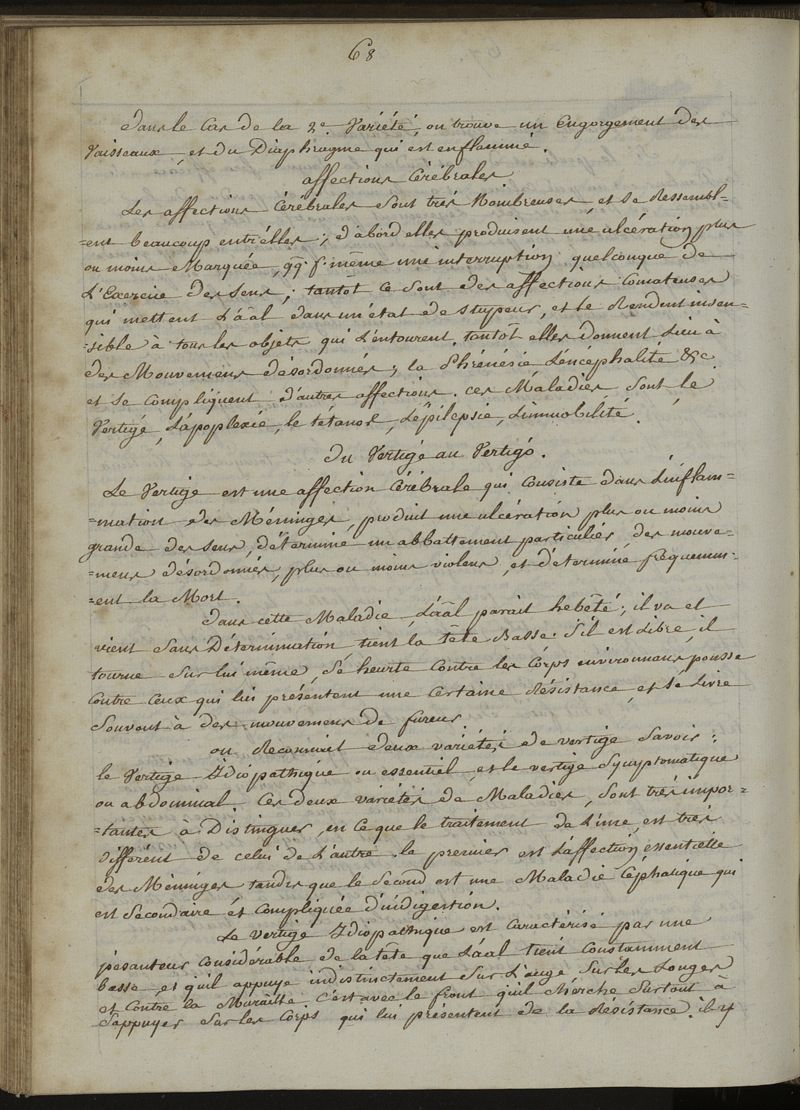 68
Dans le Cas de la 2e. Variété, on trouve un Engorgement des
Vaisseaux, et du Diaphragme qui est enflammé.
affections Cérébrales.
Les affections Cérébrales sont très Nombreuses, et se Ressembl-
=ent beaucoup entr'élles; d'abord elles produisent une ulcération plus
ou moins Marquée, qq. f. même une interruption quelconque de
L'Exercice des sens; tantot ce sont des affections Comateuses
qui mettent L'áal dans un état de stupeur, et le Rendent insen-
=sible à tous les objets qui L'entourent, tantôt elles donnent Lieu à
des Mouvemens désordonnés; la Phrénésie L'éncephalité &c.
et se Compliquent d'autres affections. ces Maladies, sont le
Vertige, L'apoplexie, le tétanos, L'épilepsie, L'immobilité.
Du Vertigé au Vertigo.
Le Vertige est une affection Cérébrale qui Consiste dans L'inflam-
=mation des Méninges, produit une ulcération plus ou moins
grande des sens, détermine un abbattement particulier, des mouve-
=mens désordonnés, plus ou moins violens, et détermine fréquemm-
=ent la Mort.
Dans cette Maladie, L'áal parait hebêté; il va et
vient Sans Détermination, tient la tête Basse. S'il est Libre, il
tourne Sur lui même, Sé heurte Contre les Corps environnans, pousse
Contre Ceux qui lui présentent une Certaine Résistance, et se Livre
Souvent à des mouvemens de fureur.
on Reconnait deux variétés de vertige Savoir:
le Vertige Idiopathique ou essentiel, et le vertige Symptomatique
ou abdominal. Ces deux variétés de Maladies, Sont très impor-
=tantes à Distinguer, en Ce que le traitement de L'une, est très
différent de celui de L'autre. le premier est L'affection essentielle
des Méninges tandis que le Second est une Maladie Céphalique qui
est Secondaire ét Compliquée d'indigestion.
Le vertige Idiopathique est Caractérisé par une
pésanteur Considérable de la tête que L'áal tient Constamment
basse, et qu'il appuye indistinctement Sur L'auge, Sur les Longes
et Contre la Muraille. C'est avec le front qu'il cherche Surtout à
S'appuyer Sur les Corps qui lui présentent de la Résistance. il y